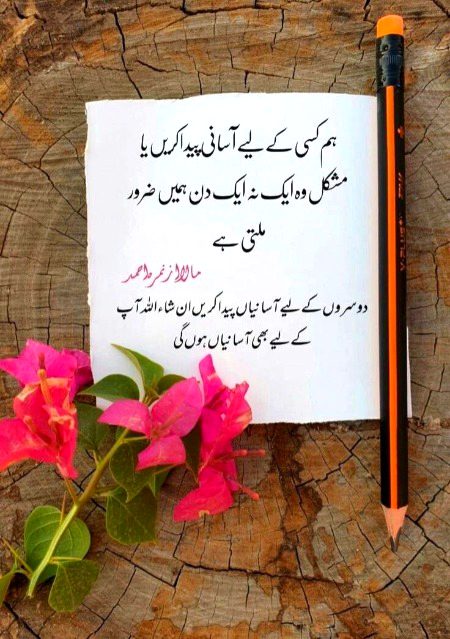 ہم کسی کے لیے آسانی پیدا کریں یا
مشکل وہ ایک نہ ایک دن ہمیں ضرور
ملتی ہے
مالا از نمرہ احمد
دوسروں کے لیے آسانیاں پیدا کریں ان شاء اللہ آپ
کے لیے بھی آسانیاں ہوں گی